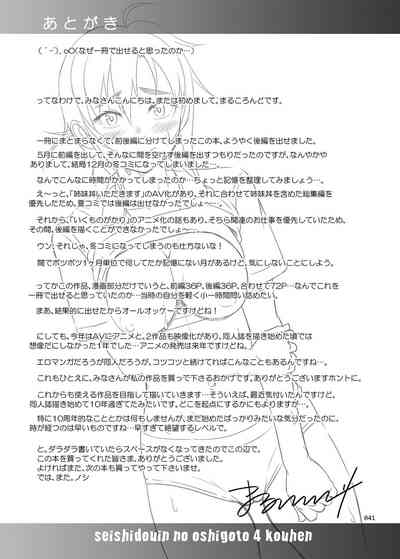 あとがき
(´-`).｡oO(なぜ一冊で出せると思ったのか…)
ってなわけで、みなさんこんにちは、または初めまして、まるころんどです。
一冊にまとまらなくて、前後編に分けてしまったこの本、ようやく後編を出せました。
5月に前編を出して、そんなに間を空けず後編を出すつもりだったのですが、なんやかや
ありまして、結局12月の冬コミになってしまいました…。
なんでこんなに時間がかかってしまったのか…ちょっと記憶を整理してみましょう…。
え～っと、「姉妹丼いただきます」のAV化があり、それに合わせて姉妹丼を含めた総集編を
優先したため、夏コミでは後編は出せなかったでしょ～…。
それから、「いくものがかり」のアニメ化の話もあり、そちら関連のお仕事を優先していたため、
その間、後編を描くことができなかったでしょ～…。
ウン!それじゃ、冬コミになってしまうのも仕方ないな!
間でポツポツ1ヶ月単位で何してたか記憶にない月があるけど、気にしないことにしよう。
ってかこの作品、漫画部分だけでいうと、前編36P、後編36P、合わせて72P…なんでこれを
一冊で出せると思っていたのか…当時の自分を軽く小一時間問い詰めたい。
まあ、結果的に出せたからオールオッケーですけどね!
にしても、今年はAVにアニメと、2作品も映像化があり、同人誌を描き始めた頃では
想像だにしなかった1年でした…アニメの発売は来年ですけどね。
エロマンガだろうが同人だろうが、コツコツと続けてればこんなこともあるんですね…。
これもひとえに、みなさんが私の作品を買って下さるおかげです、ありがとうございますホントに。
これからも使える作品を目指して描いていきます…そういえば、最近気付いたんですけど。
同人誌描き始めて10年過ぎてたみたいです。どこを起点にするかにもよりますが…。
特に10周年的なこととかは何もしませんが、まだ始めたばっかりみたいな気分だったのに、
時が経つのは早いものですね…早すぎて絶望するレベルで。
と、ダラダラ書いていたらスペースがなくなってきたのでこの辺で。
この本を買ってくれた皆さま、ありがとうございました。
よければまた、次の本も買ってやって下さいませ。
では、また。ノシ
#41
seishidouin no oshigoto 4 kouhen